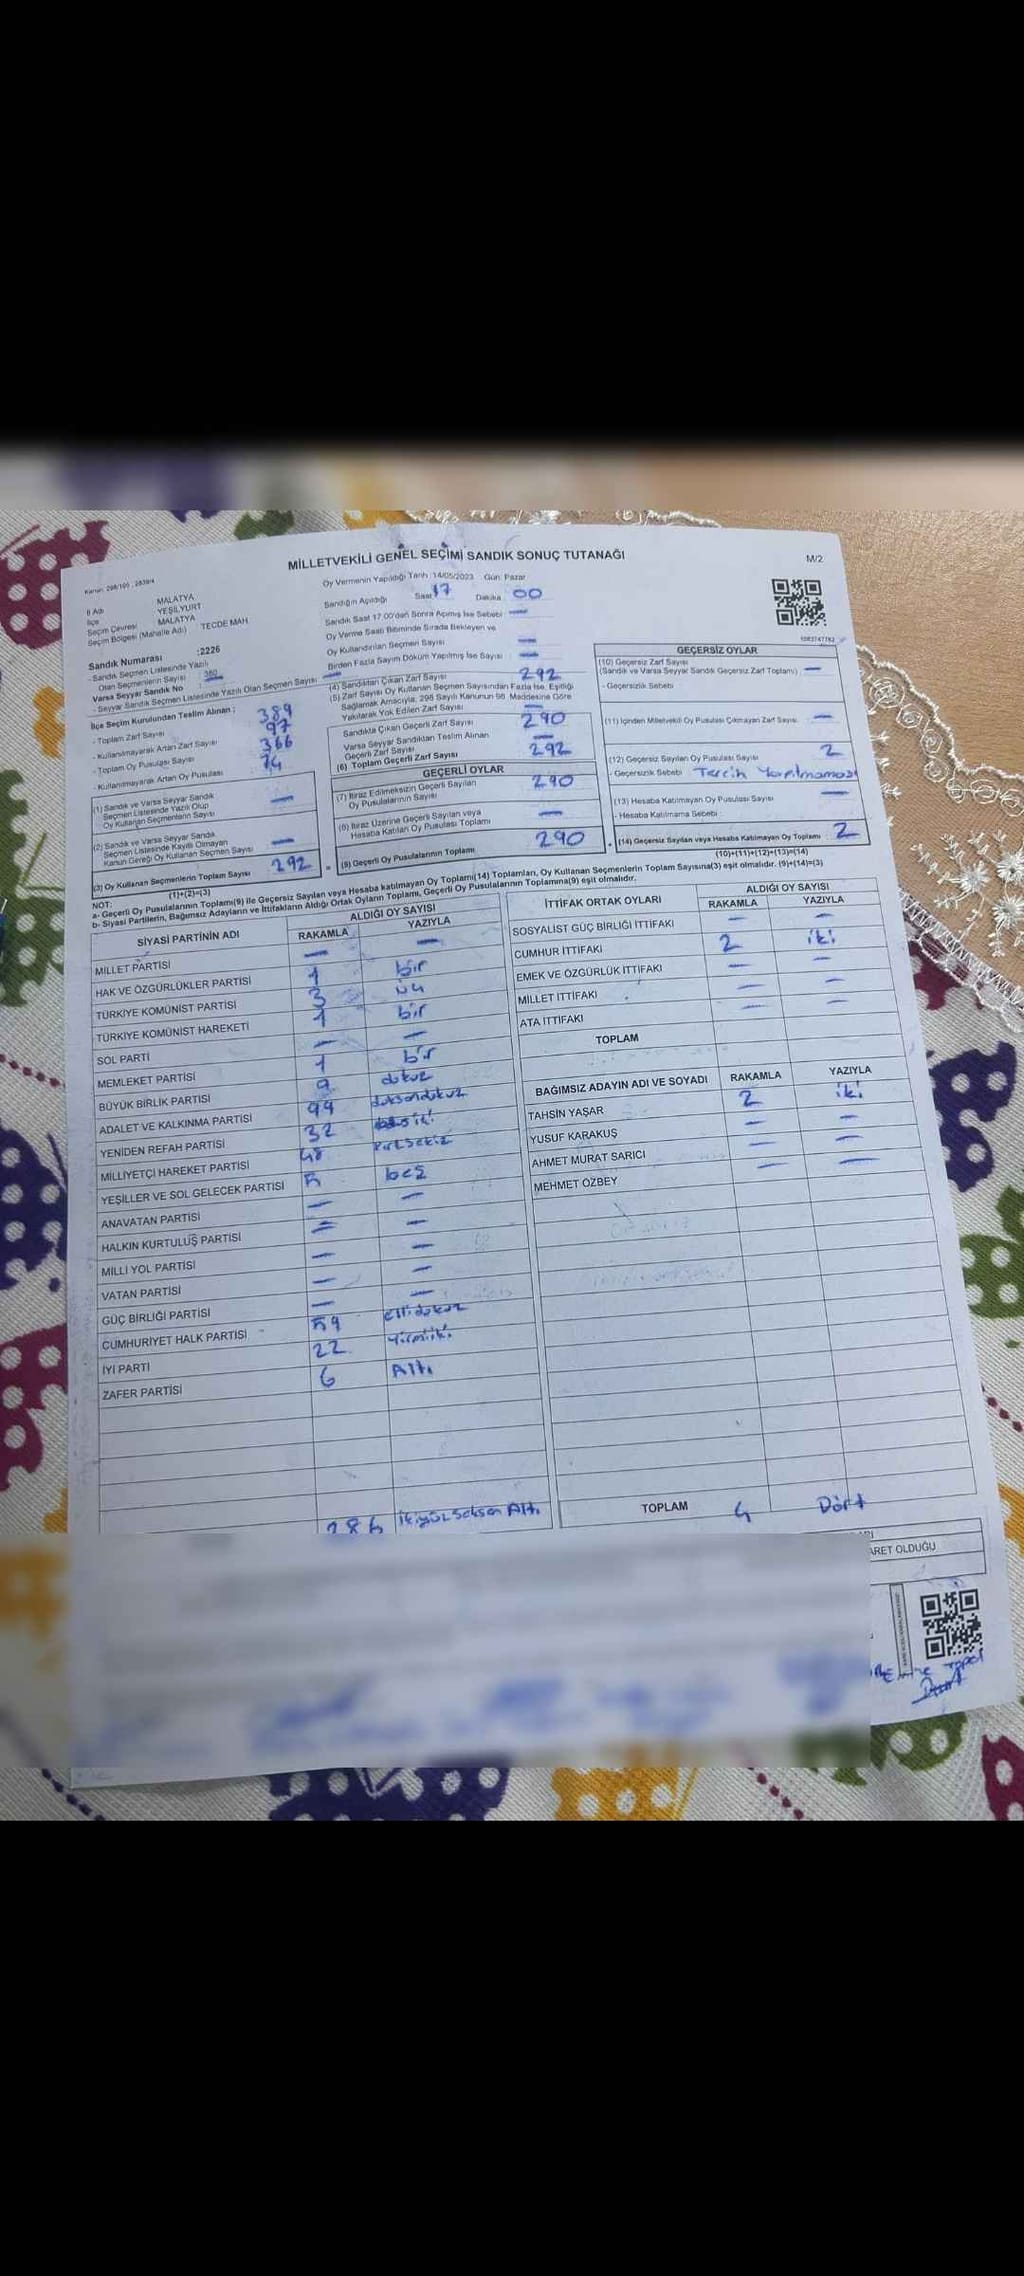 MİLLETVEKİLİ GENEL SEÇİMİ SANDIK SONUÇ TUTANAĞI
M/2
Oy Vermenin Yapıldığı Tarih :14/05/2023 Gün: Pazar
İl Adı MALATYA
İlçe YEŞİLYURT
Seçim Çevresi MALATYA
Seçim Bölgesi (Mahalle Adı) TECDE MAH.
Sandığın Açıldığı Saat 17 Dakika 00
Sandık Saat 17.00'den Sonra Açılmış İse Sebebi : —
Oy Verme Saati Bitiminde Sırada Bekleyen ve
Oy Kullandırılan Seçmen Sayısı —
Birden Fazla Sayım Döküm Yapılmış İse Sayısı : —
Sandık Numarası :2226
- Sandık Seçmen Listesinde Yazılı
Olan Seçmenlerin Sayısı : 380
Varsa Seyyar Sandık No
- Seyyar Sandık Seçmen Listesinde Yazılı Olan Seçmen Sayısı : —
İlçe Seçim Kurulundan Teslim Alınan ;
- Toplam Zarf Sayısı 389
- Kullanılmayarak Artan Zarf Sayısı 97
- Toplam Oy Pusulası Sayısı 366
- Kullanılmayarak Artan Oy Pusulası 74
(1) Sandık ve Varsa Seyyar Sandık
Seçmen Listesinde Yazılı Olup
Oy Kullanan Seçmenlerin Sayısı —
(2) Sandık ve Varsa Seyyar Sandık
Seçmen Listesinde Kayıtlı Olmayan
Kanun Gereği Oy Kullanan Seçmen Sayısı —
(3) Oy Kullanan Seçmenlerin Toplam Sayısı 292
(1)+(2)=(3)
(4) Sandıktan Çıkan Zarf Sayısı 292
(5) Zarf Sayısı Oy Kullanan Seçmen Sayısından Fazla İse, Eşitliği
Sağlamak Amacıyla, 298 Sayılı Kanunun 98. Maddesine Göre
Yakılarak Yok Edilen Zarf Sayısı —
Sandıkta Çıkan Geçerli Zarf Sayısı 290
Varsa Seyyar Sandıktan Teslim Alınan
Geçerli Zarf Sayısı —
(6) Toplam Geçerli Zarf Sayısı 292
GEÇERLİ OYLAR
(7) İtiraz Edilmeksizin Geçerli Sayılan
Oy Pusulalarının Sayısı 290
(8) İtiraz Üzerine Geçerli Sayılan veya
Hesaba Katılan Oy Pusulası Toplamı —
(9) Geçerli Oy Pusulalarının Toplamı 290
GEÇERSİZ OYLAR
(10) Geçersiz Zarf Sayısı
(Sandık ve Varsa Seyyar Sandık Geçersiz Zarf Toplamı) —
- Geçersizlik Sebebi
(11) İçinden Milletvekili Oy Pusulası Çıkmayan Zarf Sayısı —
(12) Geçersiz Sayılan Oy Pusulası Sayısı 2
- Geçersizlik Sebebi Tercih Yapılmaması
(13) Hesaba Katılmayan Oy Pusulası Sayısı —
- Hesaba Katılmama Sebebi
(14) Geçersiz Sayılan veya Hesaba Katılmayan Oy Toplamı 2
(10)+(11)+(12)+(13)=(14)
NOT:
a- Geçerli Oy Pusulalarının Toplamı(9) ile Geçersiz Sayılan veya Hesaba katılmayan Oy Toplamı(14) Toplamları, Oy Kullanan Seçmenlerin Toplam Sayısına(3) eşit olmalıdır. (9)+(14)=(3)
b- Siyasi Partilerin, Bağımsız Adayların ve İttifakların Aldığı Ortak Oyların Toplamı, Geçerli Oy Pusulalarının Toplamına(9) eşit olmalıdır.
SİYASİ PARTİNİN ADI ALDIĞI OY SAYISI
RAKAMLA YAZIYLA
MİLLET PARTİSİ — —
HAK VE ÖZGÜRLÜKLER PARTİSİ 1 bir
TÜRKİYE KOMÜNİST PARTİSİ 3 üç
TÜRKİYE KOMÜNİST HAREKETİ 1 bir
SOL PARTİ — —
MEMLEKET PARTİSİ 1 bir
BÜYÜK BİRLİK PARTİSİ 9 dokuz
ADALET VE KALKINMA PARTİSİ 99 doksandokuz
YENİDEN REFAH PARTİSİ 32
MİLLİYETÇİ HAREKET PARTİSİ 48 kırksekiz
YEŞİLLER VE SOL GELECEK PARTİSİ 5 beş
ANAVATAN PARTİSİ — —
HALKIN KURTULUŞ PARTİSİ — —
MİLLİ YOL PARTİSİ — —
VATAN PARTİSİ — —
GÜÇ BİRLİĞİ PARTİSİ — —
CUMHURİYET HALK PARTİSİ 59 ellidokuz
İYİ PARTİ 22 Yirmiiki
ZAFER PARTİSİ 6 Altı
286 İkiyüz Seksen Altı
İTTİFAK ORTAK OYLARI ALDIĞI OY SAYISI
RAKAMLA YAZIYLA
SOSYALİST GÜÇ BİRLİĞİ İTTİFAKI — —
CUMHUR İTTİFAKI 2 iki
EMEK VE ÖZGÜRLÜK İTTİFAKI — —
MİLLET İTTİFAKI — —
ATA İTTİFAKI — —
TOPLAM
BAĞIMSIZ ADAYIN ADI VE SOYADI RAKAMLA YAZIYLA
TAHSİN YAŞAR 2 iki
YUSUF KARAKUŞ — —
AHMET MURAT SARICI — —
MEHMET ÖZBEY — —
TOPLAM 4 Dört
ARET OLDUĞU